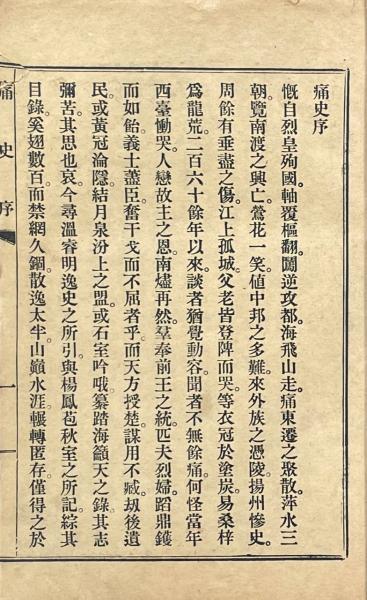 痛史序
慨自烈皇殉國軸覆樞翻闖逆攻都海飛山走痛東遷之聚散萍水三
朝覽南渡之興亡鶯花一笑値中邦之多難來外族之憑陵揚州慘史
周餘有垂盡之傷江上孤城父老皆登陴而哭等衣冠於塗炭易桑梓
爲龍荒二百六十餘年以來談者猶覺動容聞者不無餘痛何怪當年
西臺慟哭人戀故主之恩南燼再然羣奉前王之統匹夫烈婦蹈鼎鑊
而如飴義士藎臣奮干戈而不屈者乎而天方授楚謀用不臧刼後遺
民或黃冠淪隱結月泉汾上之盟或石室吟哦纂踏海籲天之錄其志
彌苦其思也哀今尋溫睿明逸史之所引與楊鳳苞秋室之所記綜其
目錄奚翅數百而禁網久錮散逸太半山巔水涯輾轉匿存僅得之於
痛史序
一